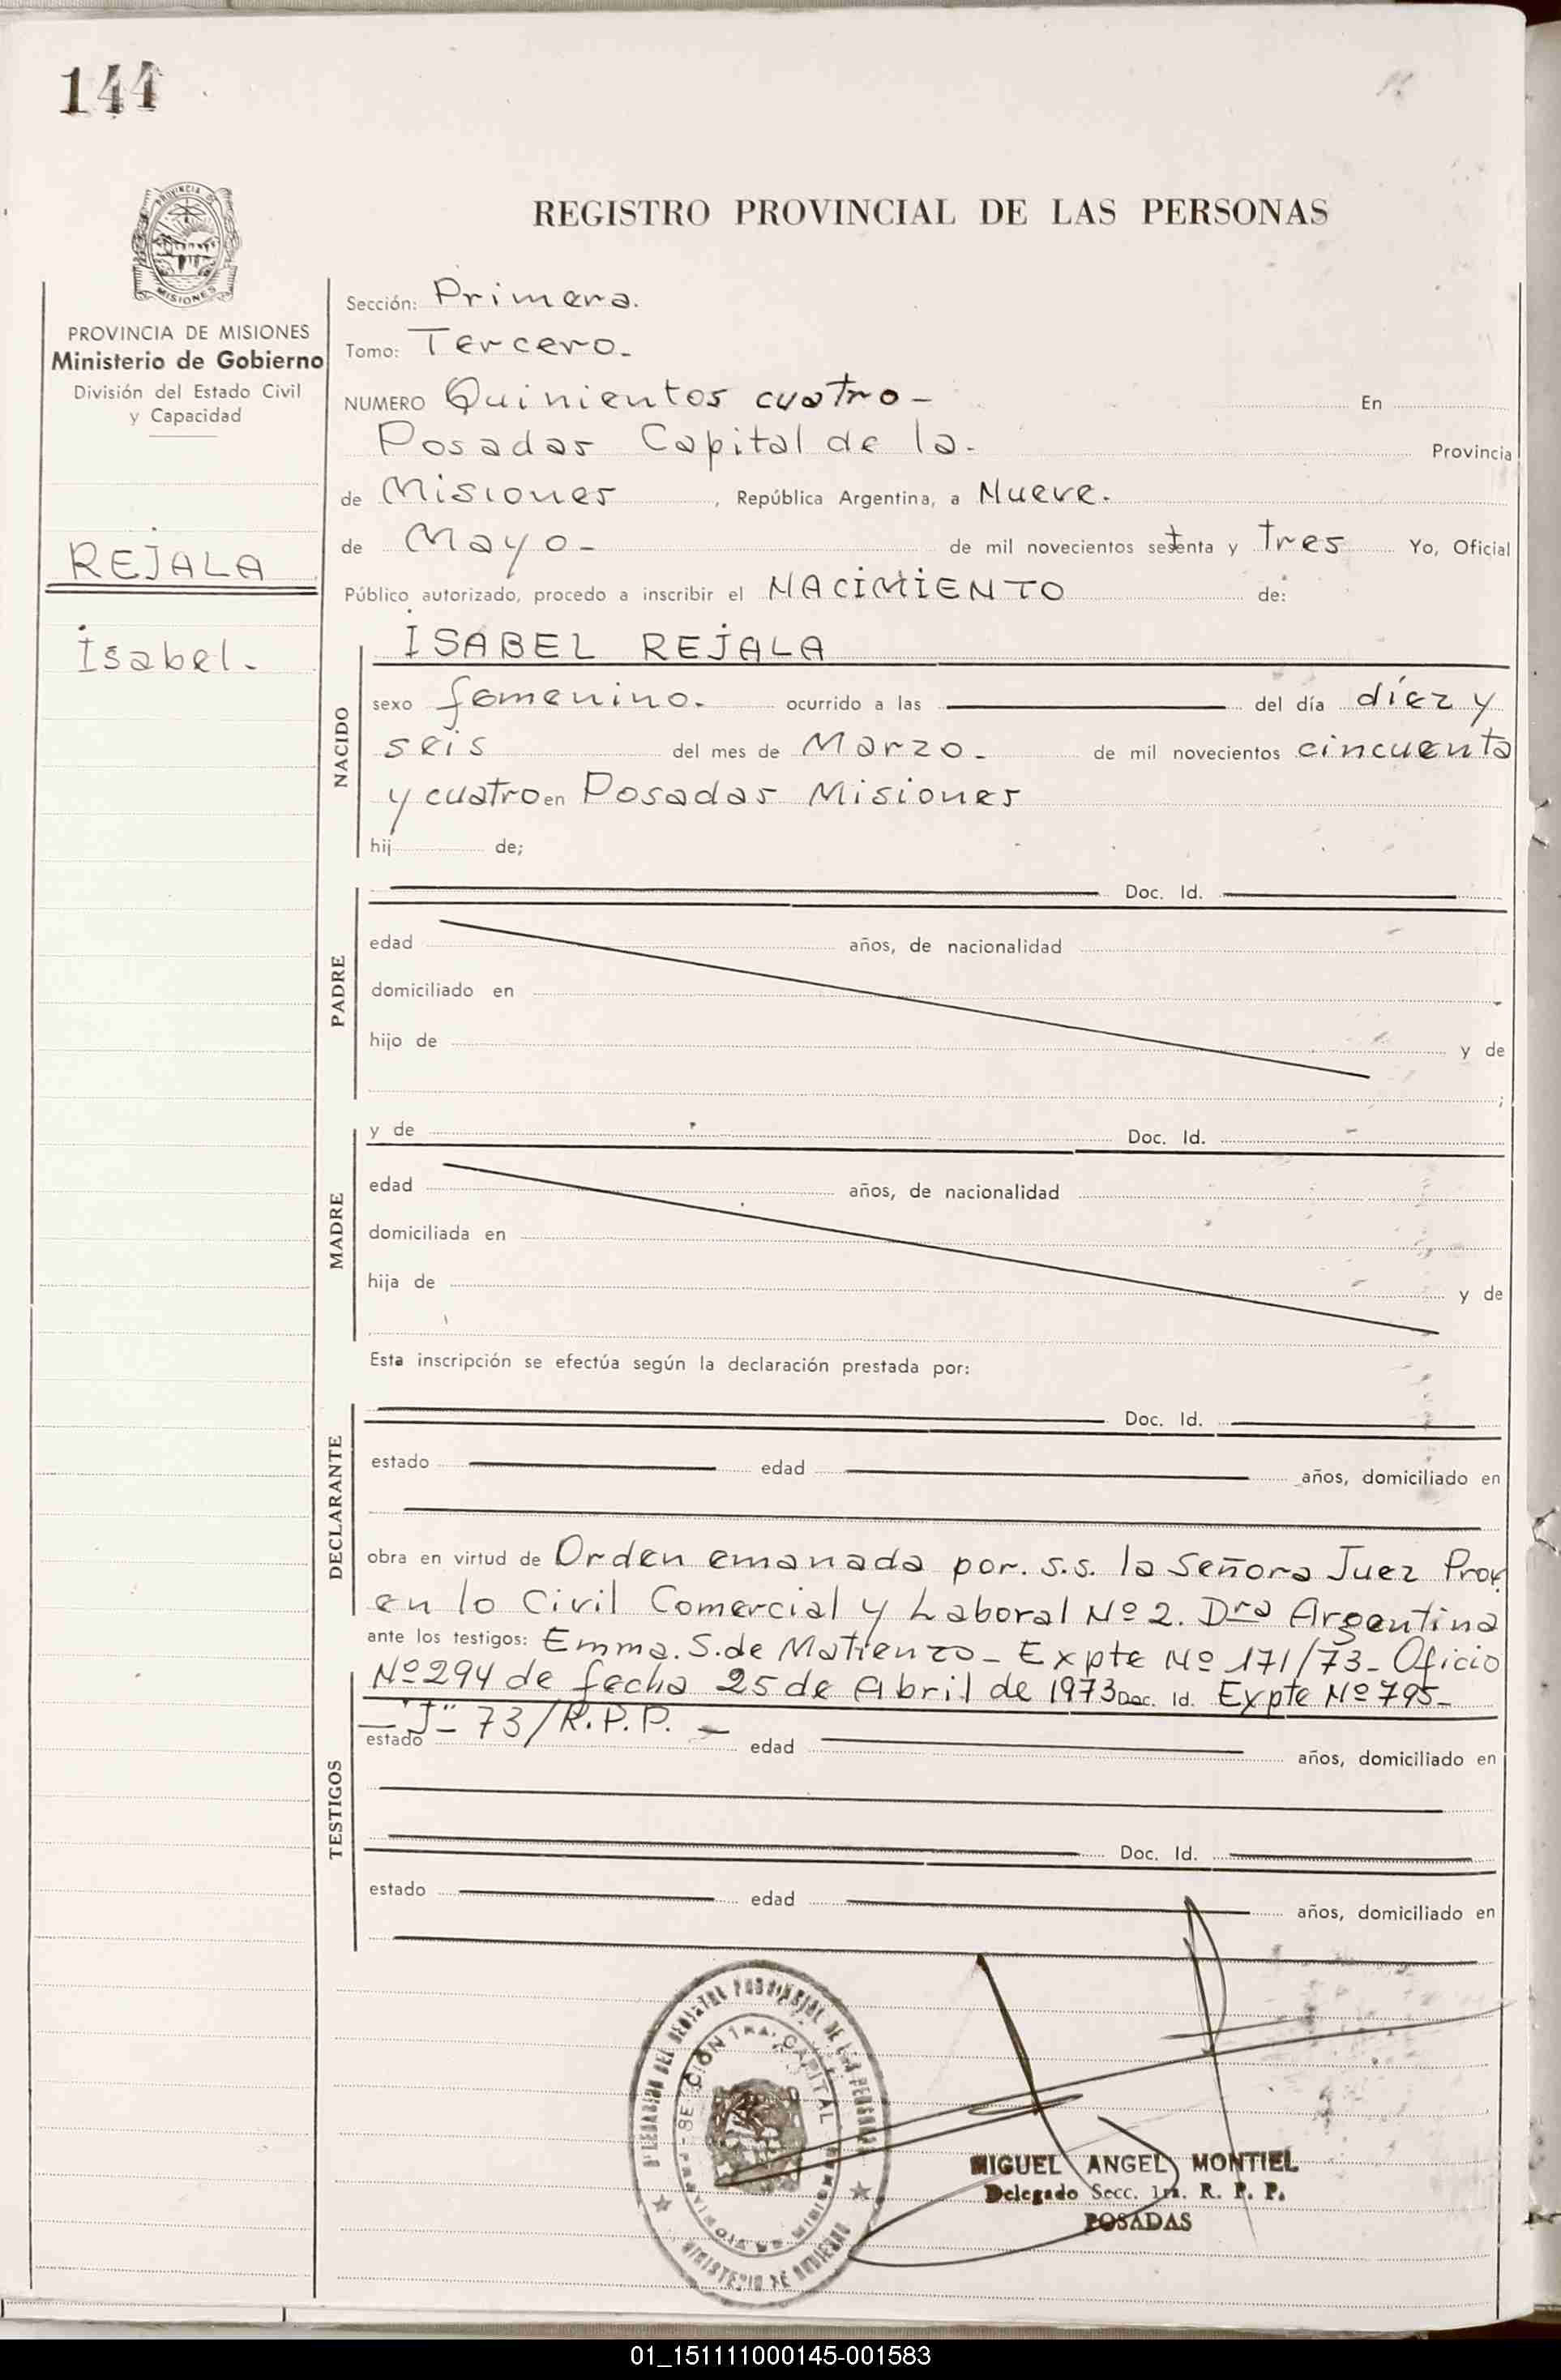 144
PROVINCIA DE MISIONES
Ministerio de Gobierno
División del Estado Civil
y Capacidad
REJALA
Isabel.
REGISTRO PROVINCIAL DE LAS PERSONAS
Sección: Primera.
Tomo: Tercero.
NUMERO Quinientos cuatro - En
Posadas Capital de la. Provincia
de Misiones, República Argentina, a Nueve.
de Mayo - de mil novecientos setenta y tres Yo, Oficial
Público autorizado, procedo a inscribir el NACIMIENTO de:
NACIDO
ISABEL REJALA
sexo femenino. ocurrido a las del día díez y
seis del mes de Marzo. de mil novecientos cincuenta
y cuatro en Posadas Misiones
hij de;
PADRE
Doc. Id.
edad años, de nacionalidad
domiciliado en
hijo de y de
;
MADRE
y de Doc. Id.
edad años, de nacionalidad
domiciliada en
hija de y de
Esta inscripción se efectúa según la declaración prestada por:
DECLARANTE
Doc. Id.
estado edad años, domiciliado en
obra en virtud de Orden emanada por. s.s. la Señora Juez
en lo Civil Comercial y Laboral Nº 2. Dra Argentina
ante los testigos: Emma. S. de Matienzo - Expte Nº 171/73 - Oficio
Nº 294 de fecha 25 de Abril de 1973 Doc. Id. Expte Nº 795 -
- "J" - 73/R.P.P. -
TESTIGOS
estado edad años, domiciliado en
Doc. Id.
estado edad años, domiciliado en
MIGUEL ANGEL MONTIEL
Delegado Secc. 1ra. R. P. P.
POSADAS
01_151111000145-001583